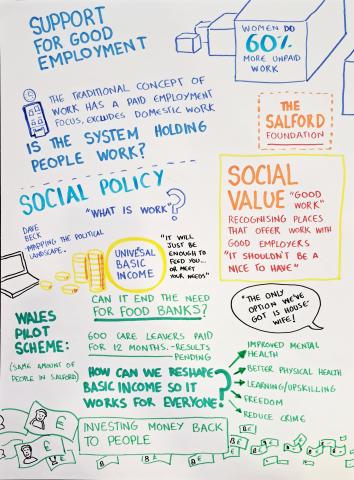 SUPPORT
FOR GOOD
EMPLOYMENT
WOMEN DO
60%
MORE UNPAID
WORK
THE TRADITIONAL CONCEPT OF
WORK HAS A PAID EMPLOYMENT
FOCUS, EXCLUDES DOMESTIC WORK
IS THE SYSTEM HOLDING
PEOPLE WORK?
THE
SALFORD
FOUNDATION
SOCIAL POLICY
"WHAT IS WORK"?
DAVE
BECK
-MAPPING THE POLITICAL
LANDSCAPE.
UNIVESAL
BASIC
INCOME
"IT WILL
JUST BE
ENOUGH TO
FEED YOU...
OR MEET
YOUR NEEDS"
SOCIAL
VALUE "GOOD
WORK"
RECOGNISING PLACES
THAT OFFER WORK WITH
GOOD EMPLOYERS
"IT SHOULDN'T BE A
NICE TO HAVE"
CAN IT END THE NEED
FOR FOOD BANKS?
WALES
PILOT
SCHEME:
(SAME AMOUNT OF
PEOPLE IN SALFORD)
600 CARE LEAVERS PAID
FOR 12 MONTHS.-RESULTS
PENDING
"THE ONLY
OPTION WE'VE
GOT IS HOUSE
WIFE!
HOW CAN WE RESHAPE
BASIC INCOME SO IT
WORKS FOR EVERYONE?
IMPROVED MENTAL
HEALTH
BETTER PHYSICAL HEALTH
LEARNING/UPSKILLING
FREEDOM
REDUCE CRIME
INVESTING MONEY BACK
TO PEOPLE